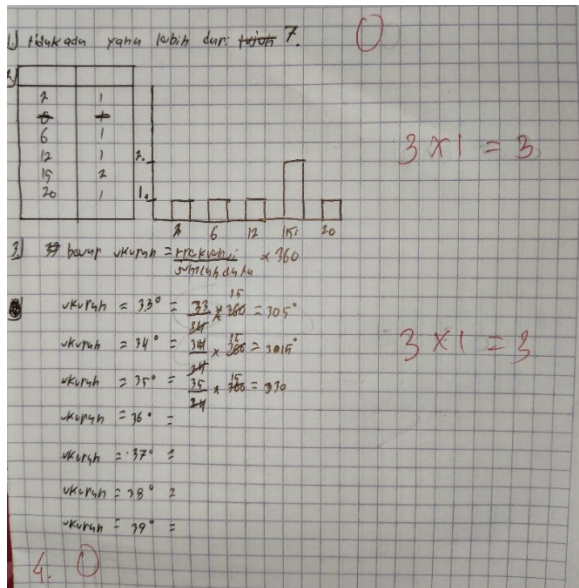 1) tidak ada yang lebih dari 7. 0
2)
2 1
6 1
12 1 2.
15 2
20 1 1.
2 6 12 15 20
3 x 1 = 3
3) besar ukuran = frekuensi / jumlah data x 360
ukuran = 33° = 33/24 x 360 15 = 305°
ukuran = 34° = 34/24 x 360 15 = 3015°
ukuran = 35° = 35/24 x 360 15 = 330
ukuran = 36° =
ukuran = 37° =
ukuran = 38° =
ukuran = 39° =
3 x 1 = 3
4. 0